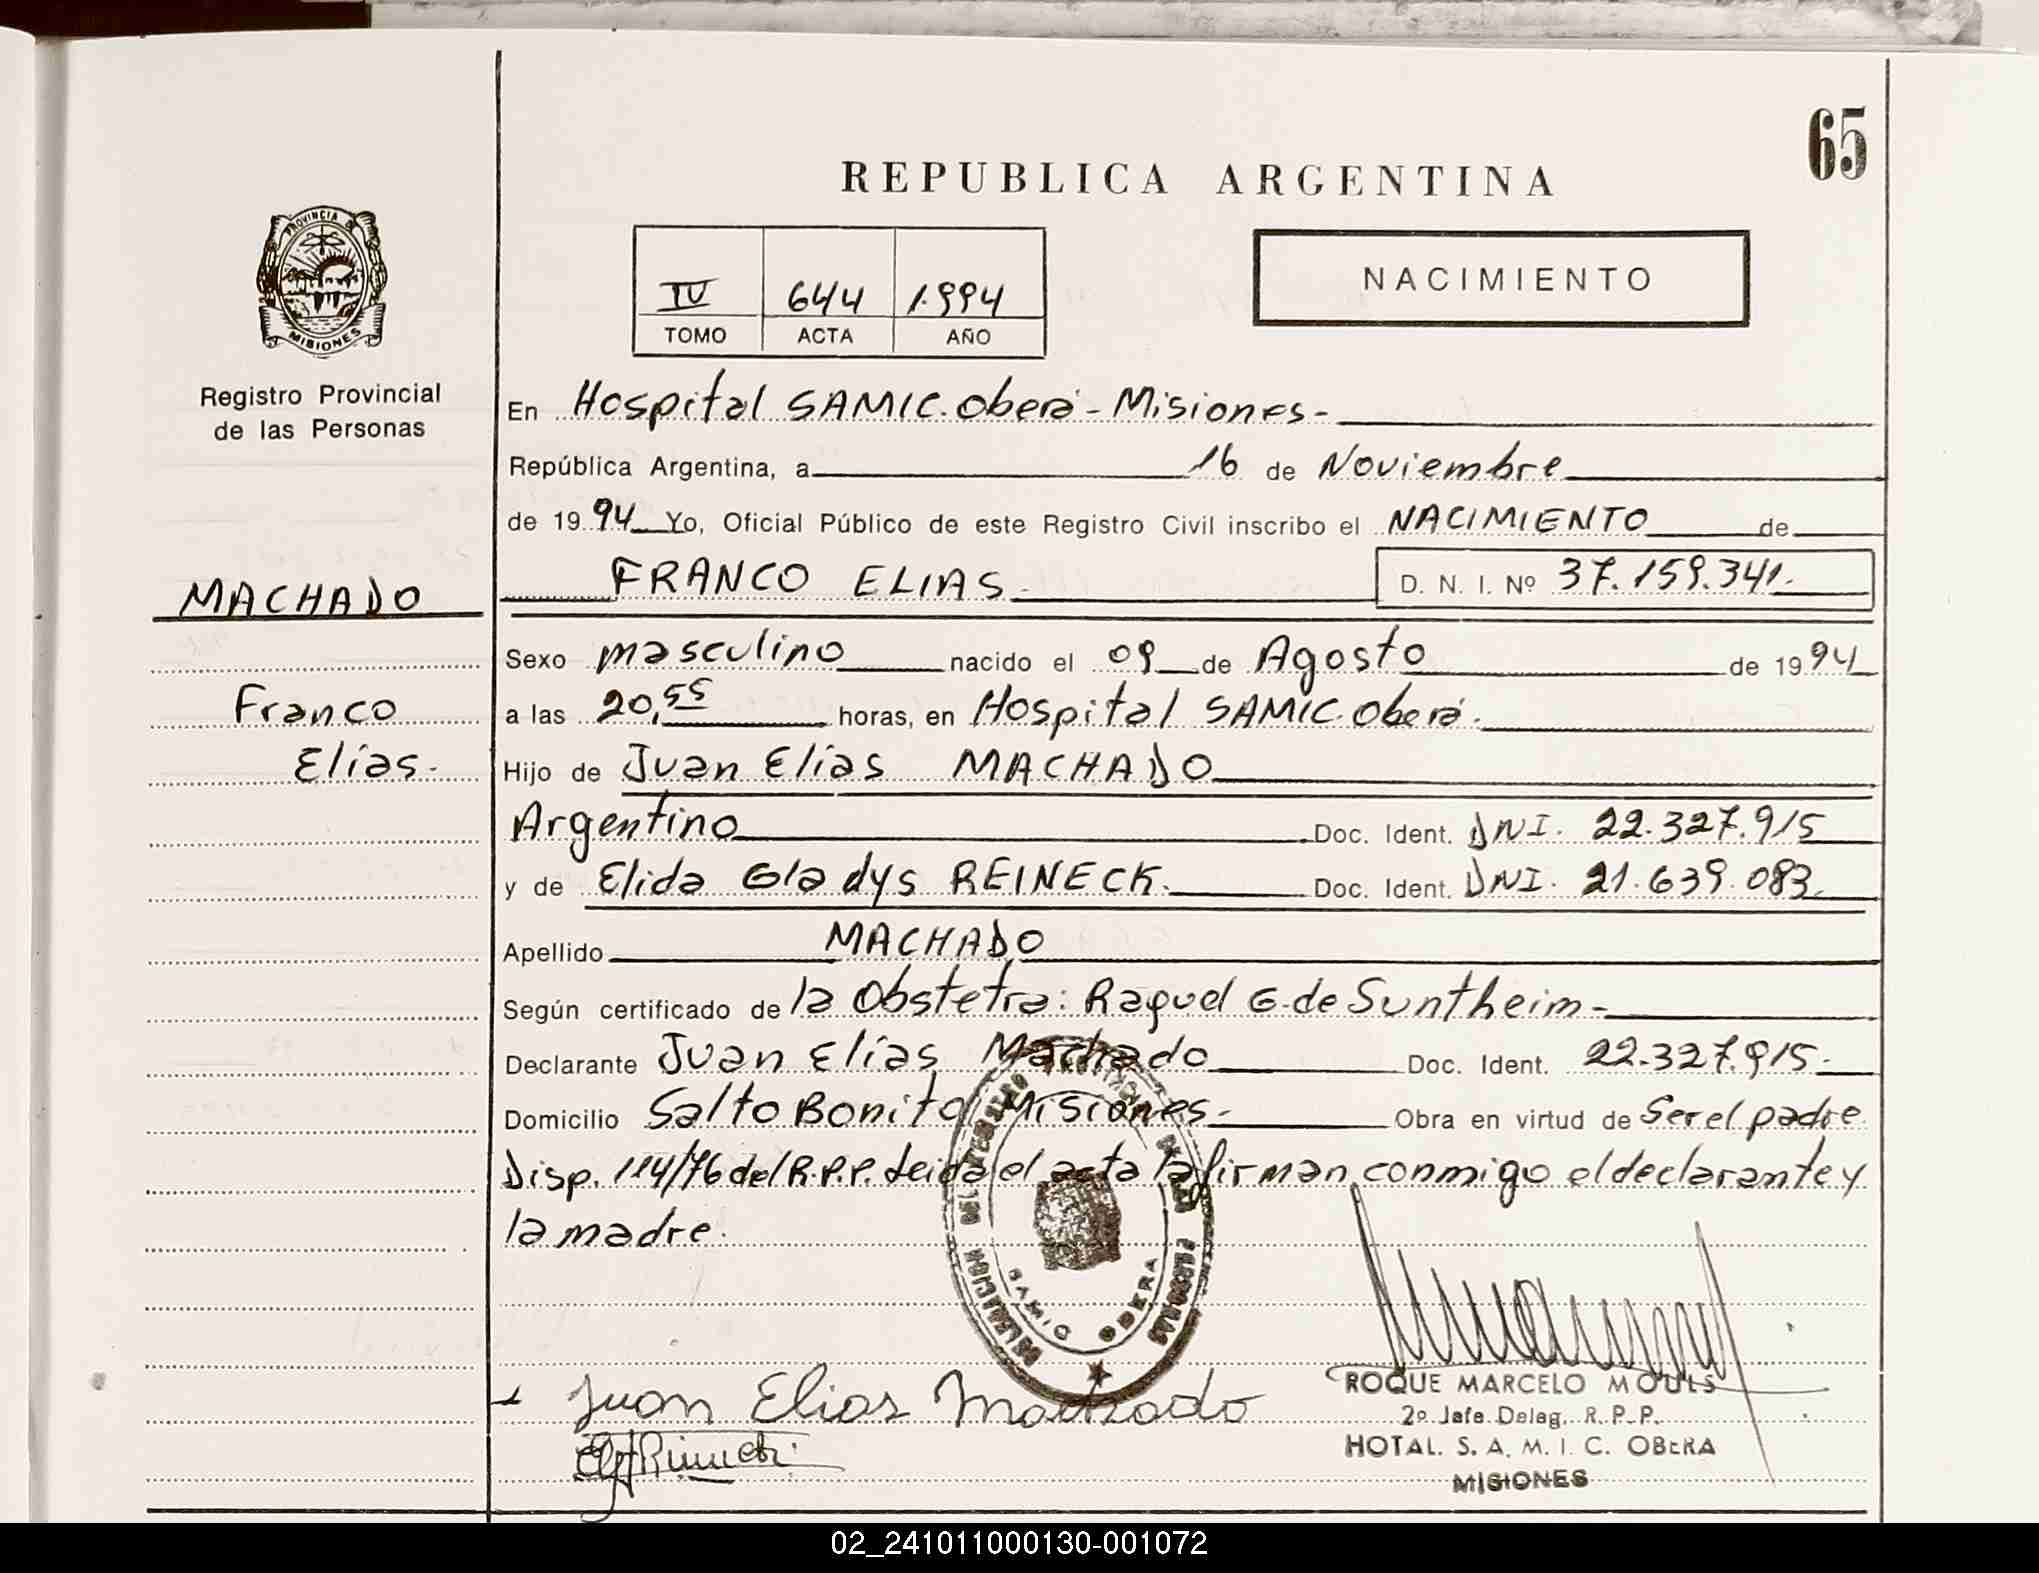 65
REPUBLICA ARGENTINA
PROVINCIA DE
MISIONES
Registro Provincial
de las Personas
IV 644 1.994
TOMO ACTA AÑO
NACIMIENTO
En Hospital SAMIC. Oberá - Misiones -
República Argentina, a 16 de Noviembre
de 1994 Yo, Oficial Público de este Registro Civil inscribo el NACIMIENTO de
MACHADO
FRANCO ELIAS. D. N. I. Nº 37.159.341.
Sexo masculino nacido el 09 de Agosto de 1994
Franco
a las 20,55 horas, en Hospital SAMIC. Oberá.
Elías.
Hijo de Juan Elías MACHADO
Argentino Doc. Ident. DNI. 22.327.915
y de Elida Gladys REINECK. Doc. Ident. DNI. 21.639.083.
Apellido MACHADO
Según certificado de la Obstetra: Raquel G. de Suntheim -
Declarante Juan Elías Machado Doc. Ident. 22.327.915.
Domicilio Salto Bonito Misiones. Obra en virtud de Ser el padre
Disp. 114/76 del R.P.P. Leida el acta la firman conmigo el declarante y
la madre.
DELEGACION DEL REGISTRO PROVINCIAL DE LAS PERSONAS
SAMIC OBERA
Juan Elias Machado
ROQUE MARCELO MOULS
2º Jefe Deleg. R. P. P.
HOTAL. S. A. M. I. C. OBERA
MISIONES
02_241011000130-001072